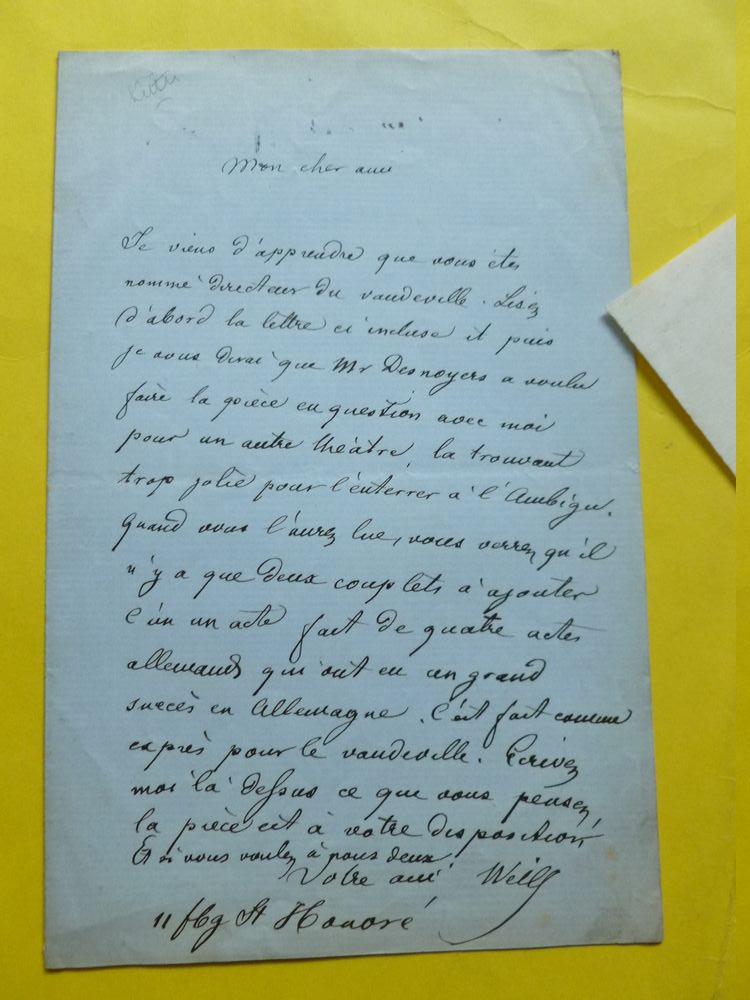 Mon cher ami
Je viens d'apprendre que vous êtes
nommé directeur du vaudeville. Lisez
d'abord la lettre ci incluse et puis
je vous dirai que Mr Desnoyers a voulu
faire la pièce en question avec moi
pour un autre théâtre, la trouvant
trop jolie pour l'enterrer à l'Ambigu.
Quand vous l'aurez lue, vous verrez qu'il
n'y a que deux couplets à ajouter
C'est un acte fait de quatre actes
allemands qui ont eu un grand
succès en Allemagne. C'est fait comme
exprès pour le vaudeville. Ecrivez
moi là dessus ce que vous pensez,
la pièce est à votre disposition
Et si vous voulez à nous deux
Votre ami Weill
11 fbg St Honoré